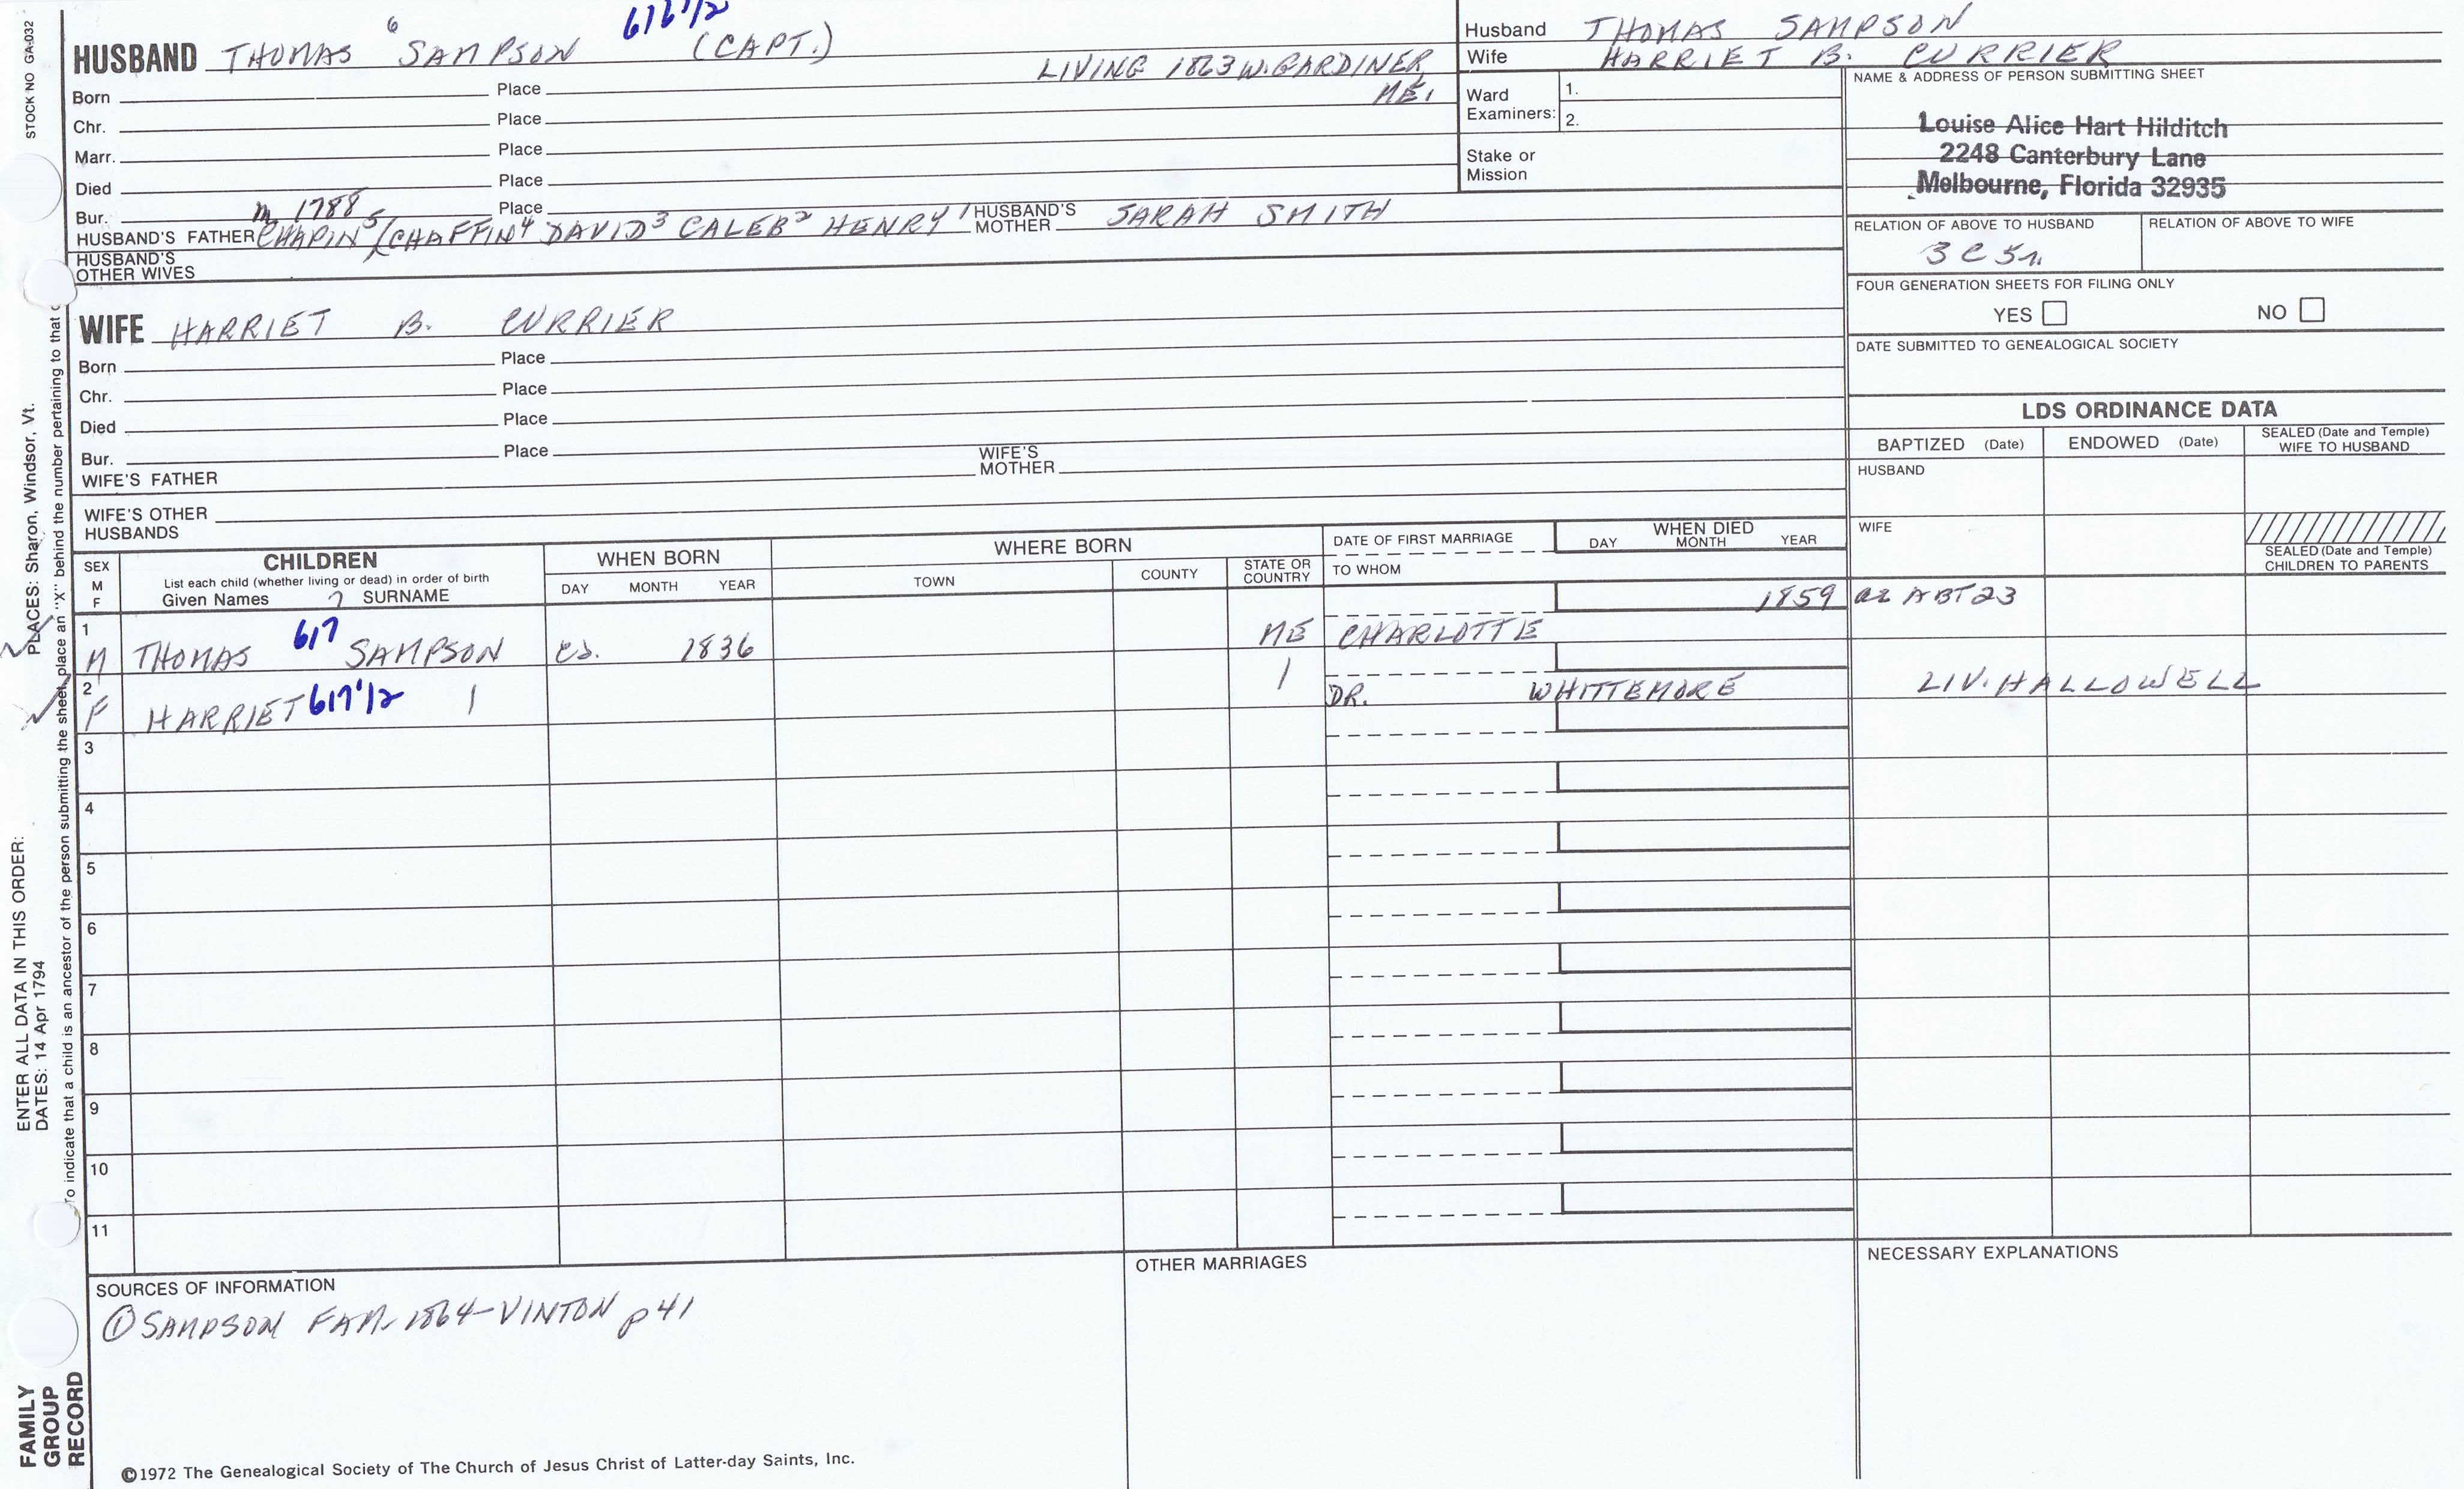 STOCK NO GA-032
616 1/2
HUSBAND THOMAS 6 SAMPSON (CAPT.)
LIVING 1863 W. GARDINER
ME,
Born Place
Chr. Place
Marr. Place
Died Place
Bur. Place
m 1788
HUSBAND'S FATHER CHAPIN 5 (CHAFFIN 4 DAVID 3 CALEB 2 HENRY 1 HUSBAND'S MOTHER SARAH SMITH
HUSBAND'S
OTHER WIVES
Husband THOMAS SAMPSON
Wife HARRIET B. CURRIER
Ward
Examiners:
1.
2.
Stake or
Mission
NAME & ADDRESS OF PERSON SUBMITTING SHEET
Louise Alice Hart Hilditch
2248 Canterbury Lane
Melbourne, Florida 32935
RELATION OF ABOVE TO HUSBAND
3 C 5r.
RELATION OF ABOVE TO WIFE
FOUR GENERATION SHEETS FOR FILING ONLY
YES NO
DATE SUBMITTED TO GENEALOGICAL SOCIETY
WIFE HARRIET B. CURRIER
Born Place
Chr. Place
Died Place
Bur. Place
WIFE'S FATHER
WIFE'S
MOTHER
WIFE'S OTHER
HUSBANDS
LDS ORDINANCE DATA
BAPTIZED (Date) ENDOWED (Date) SEALED (Date and Temple)
WIFE TO HUSBAND
HUSBAND
WIFE
SEALED (Date and Temple)
CHILDREN TO PARENTS
SEX
M
F
CHILDREN
List each child (whether living or dead) in order of birth
Given Names 7 SURNAME
WHEN BORN
DAY MONTH YEAR
WHERE BORN
TOWN COUNTY STATE OR
COUNTRY
DATE OF FIRST MARRIAGE
TO WHOM
WHEN DIED
DAY MONTH YEAR
1859 ae ABT 23
1
M THOMAS 617 SAMPSON ca. 1836 ME CHARLOTTE
2
F HARRIET 617 1/2 DR. WHITTEMORE LIV. HALLOWELL
3
4
5
6
7
8
9
10
11
SOURCES OF INFORMATION
① SAMPSON FAM. 1864 - VINTON p 41
OTHER MARRIAGES
NECESSARY EXPLANATIONS
©1972 The Genealogical Society of The Church of Jesus Christ of Latter-day Saints, Inc.
ENTER ALL DATA IN THIS ORDER:
DATES: 14 Apr 1794
PLACES: Sharon, Windsor, Vt.
To indicate that a child is an ancestor of the person submitting the sheet, place an "X" behind the number pertaining to that
FAMILY
GROUP
RECORD